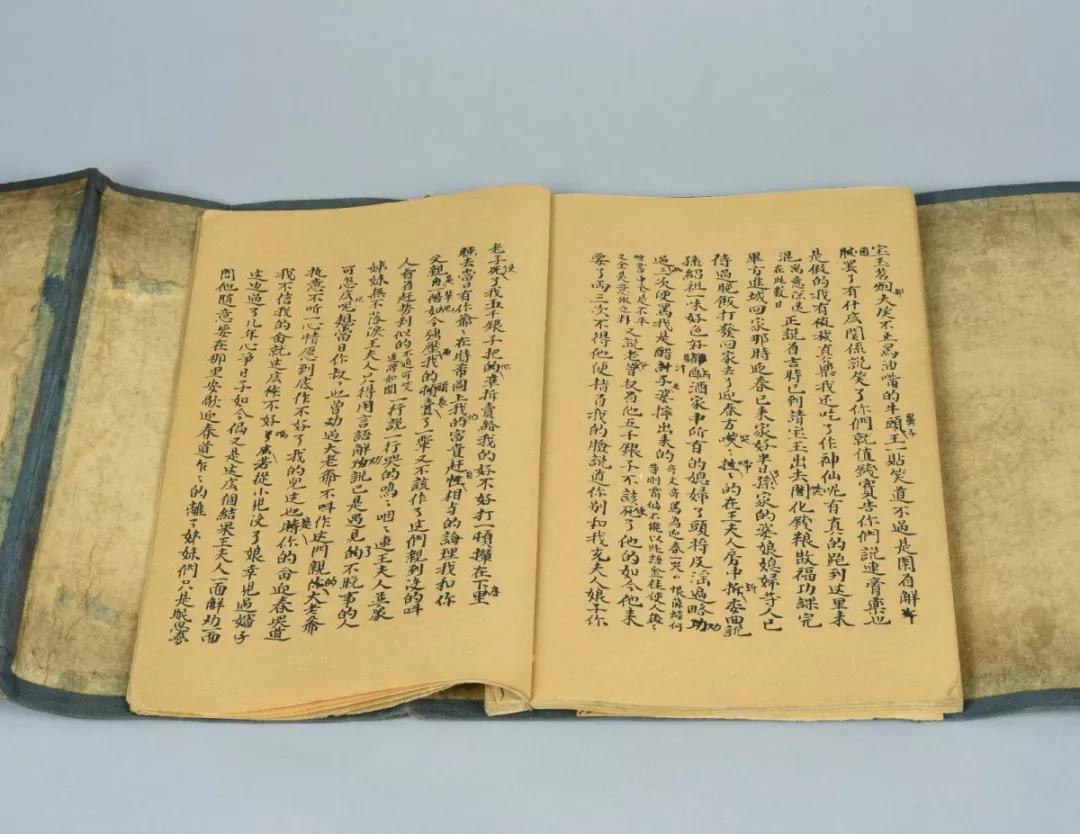 宝玉茗烟大笑不止罵油嘴的牛頭王一貼笑道不过是閑着解午
盹罢了有什庅関係說笑了你們就值錢实告你們說連膏藥也
是假的我有真藥我还吃了作神仙呢有真的跑到这里来
混寓意深遠在此数日正說着吉時已到請宝玉出去焚化錢粮散福功課完
畢方進城回家那時迎春已来家好半日孫家的婆娘媳婦等人已
待過晚飯打發回家去了迎春方哭啼的在王夫人房中訴委曲說
孫紹祖一味好色好賭酗酒家中所有的媳婦丫頭将及淫遍略劝
過两三次便罵我是醋汁子老婆擰出来的奇文奇罵為迎春一哭
又說老爺曾收着他五千銀子不該使了他的如今他来
要了两三次不得他便指着我的臉說道你别和我充夫人娘子你
老子使了我五千銀子把你準折賣給我的好不好打一頓攆在下房里
睡去當日有你爺爺在時希圖上我們的富貴赶着相与的論理我和你
父親是一輩如今強壓我的頭賣了一輩又不該作了这門親到没的叫
人看着赶勢利似的不通可笑遁辞如聞一行說一行哭的嗚嗚咽咽連王夫人並衆
姊妹無不落淚王夫人只得用言語解劝說已是遇見了的不曉事的人
可怎庅呢想當日你叔叔也曾劝過大老爺不叫作这門親的大老爺
执意不听一心情愿到底作不好了我的兒这也是你的命迎春哭道
我不信我的命就这庅样不好了嗎从小兒没了娘幸児過嬸子
这边過了几年心净日子如今偏又是这庅個结果王夫人一面解劝一面
問他随意要在那里安歇迎春道乍乍的離了姊妹們只是眠思夢